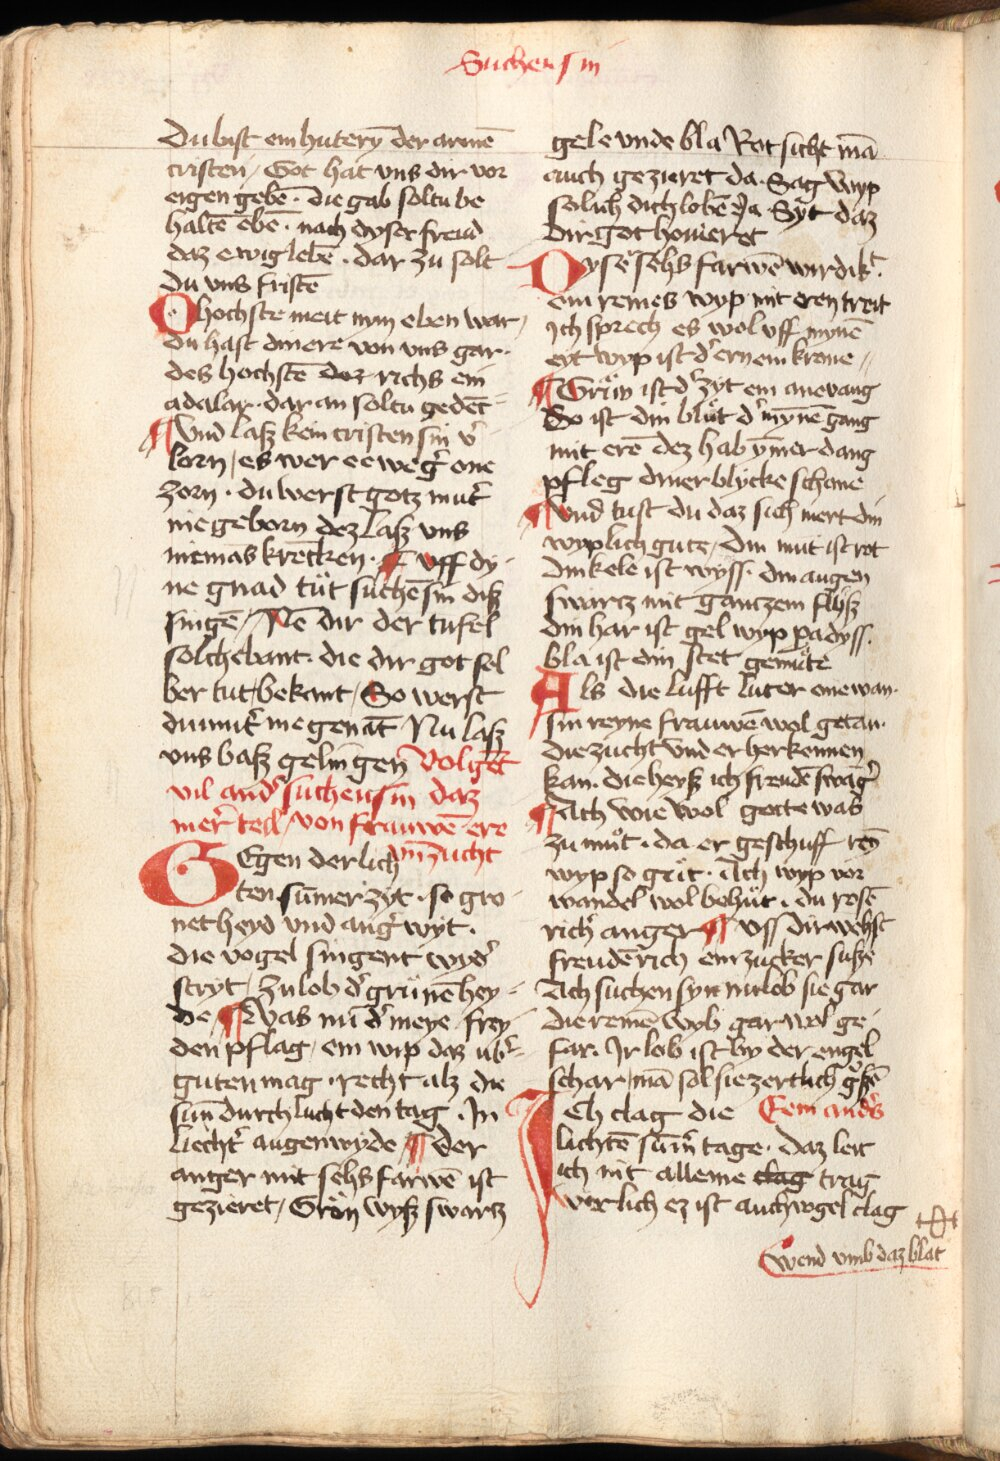 Suchensin
Du bist ein hutery̅ der arme̅
cristen / Got hat uns dir vor
eigen gebe̅ · die gab soltu be
halte̅ ebe̅ · nach dyser freud
daz ewig lebe̅ · dar zu solt
du vns friste̅
O hochste meit nym eben war /
du hast din ere von vns gar ·
des hochste̅ richs ein
adalar · dar an soltu gede̅c̅ -
¶ Vnd lasz kein cristen sin v͛
lorn / es wer ee weg͛ one
zorn · du werst gotz mut͛
nie geborn dez lasz vns
niema̅s kre̅cken · ¶ vff dy -
ne gnad tüt suche̅sin disz
singe̅ / Ne̅ dir der tufel
solche bant · die dir got sel
ber tut bekant / So werst
du mut͛ nie gena̅t Nu lasz
vns basz gelingen Volge̅t
vil and͛ suchensin daz
mer͛ teil / von frauwe̅ ere
vn̅ zucht
GEgen der lich
ten su̅mer zyt · so gro -
net heyd vnd ang͛ wyt ·
die vogel singent wyd͛
stryt / zu lob d͛ grüne̅ hey -
de ¶ Was nu̅ d͛ meye frey
den pflag / ein wip daz vb͛ -
guten mag · recht alz die
sun̅ durch lucht den tag · In
liecht͛ augenwyde ¶ der
anger mit sehs farwe̅ ist
gezieret / Grön wysz swartz
gele vnde bla Rot sicht ma̅
auch gezieret da · Sag wyp
sol ich dich lobe̅ Ja · Syt daz
dir got hovieret
Dyse sehs farwe̅ wirdikt
ein reines wyp mit eren treit
Ich sprech es wol vff myne̅
eyt wyp ist d͛ ern ein krone //
¶ Grün ist d͛ zyt ein anevang
So ist din blüt d͛ my̅ne̅ gang
mit ere̅ dez hab y̅mer dang
pfleg diner blycke schone
¶ Vnd tust du daz sich mert din
wyplich gute / Din mut ist rot
din kele ist wyss · din augen
swartz mit gantzem flysz
din har ist gel wyp padyss ·
bla ist din stet gemüte
Als die lufft luter one wan ·
sin reyne frauwe̅ wol getan ·
die zucht vnd er herkennen
kan · die heysz ich freude̅ swag͛
¶ Ach wie wol gotte was
zu müt · da er geschuff
wyp so gut · Ach wyp vor
wandel wol behüt · du rose̅
rich͛ anger ¶ vss dir wehst
freude̅rich ein zucker susze
Ach suchen syn nu lob sie gar
die reine̅ wyb gar wol ge -
far · Ir lob ist by der engel
schar / ma̅ sol sie zertlich
Ich clag die Eem and͛s
lichte̅ sum͛ tage · daz leit
ich mit alleine clag trag
Werlich ez ist auch vogel clag
Wend vmb daz blat